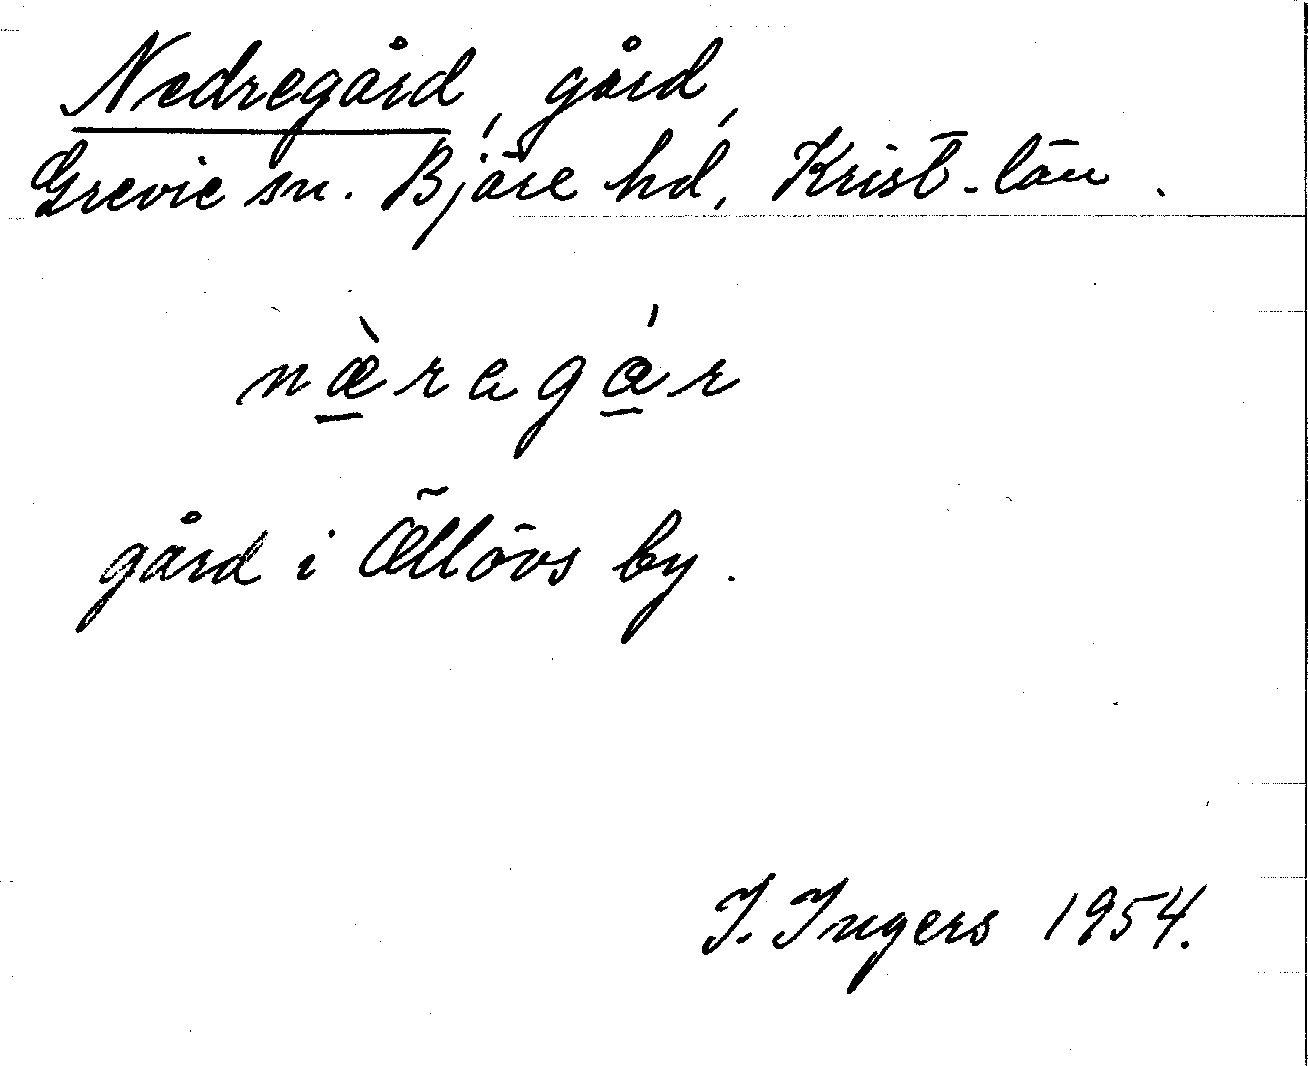 Nedregård, gård,
Grevie sn. Bjäre hd, Krist-län.
næ̀ragár
gård i Ällövs by.
I. Ingers 1954.